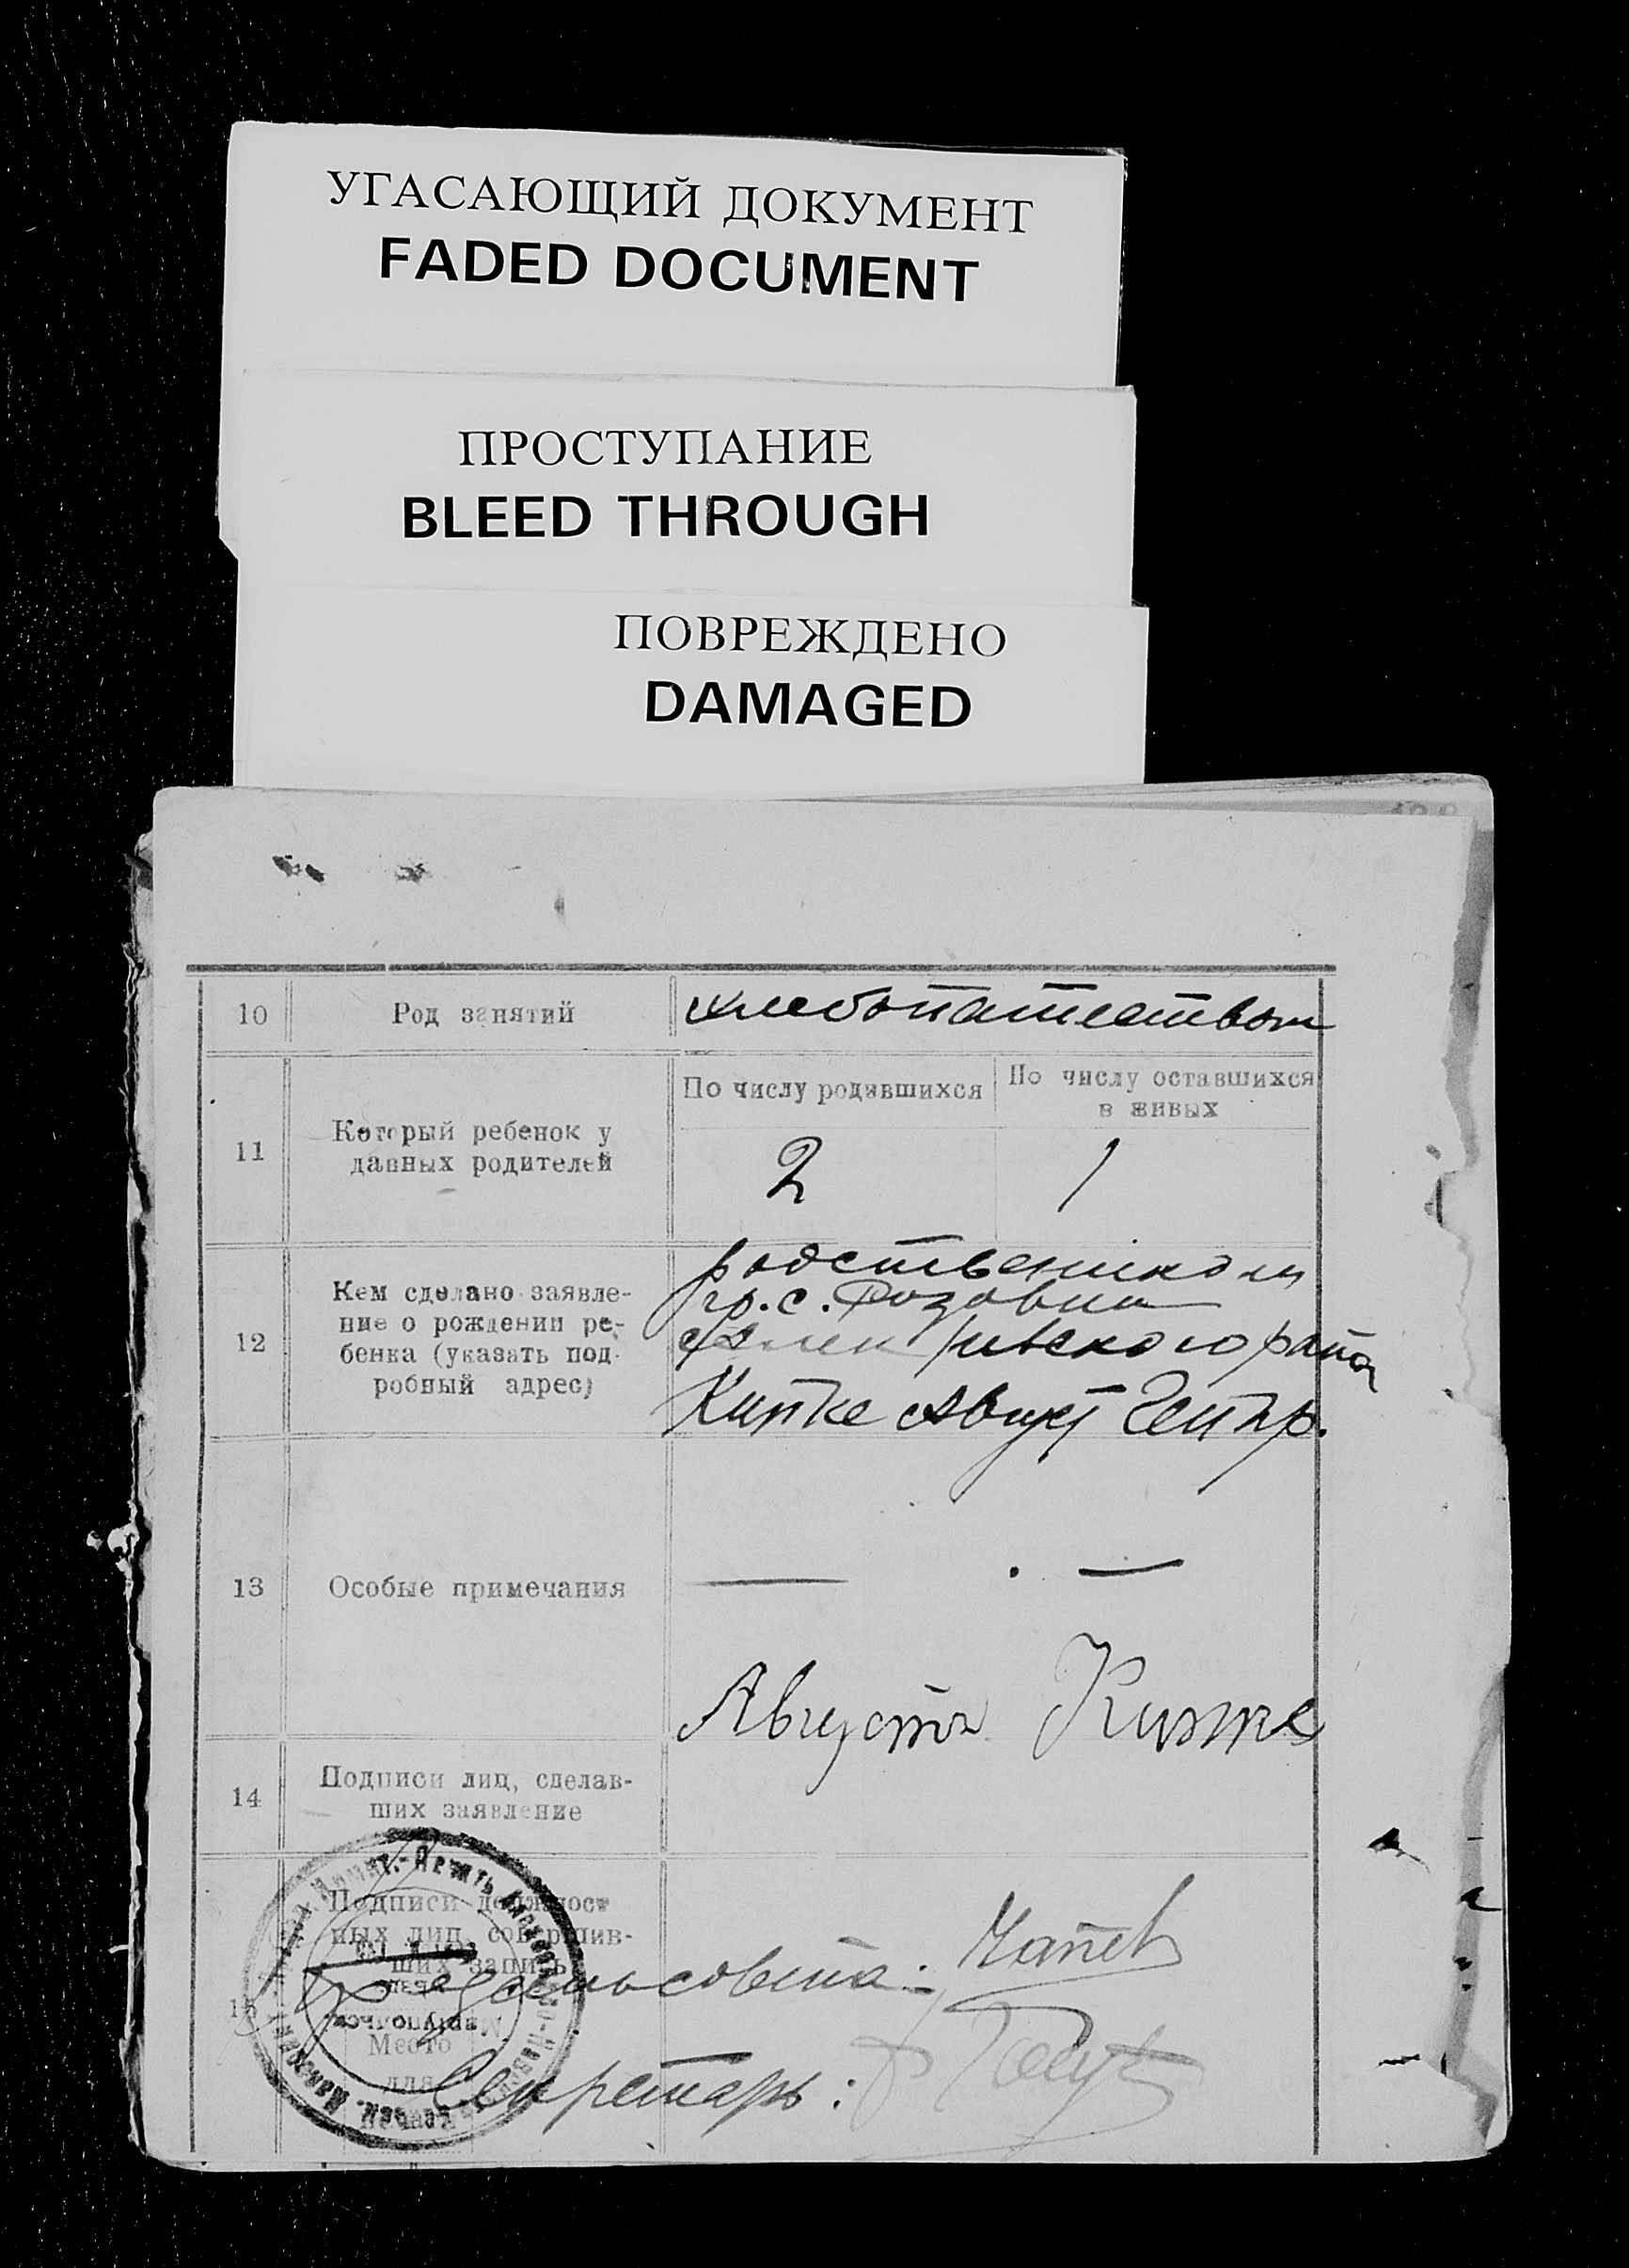 УГАСАЮЩИЙ ДОКУМЕНТ
FADED DOCUMENT
ПРОСТУПАНИЕ
BLEED THROUGH
ПОВРЕЖДЕНО
DAMAGED
10 Род занятий
хлебопашеством
11 Который ребенок у
данных родителей
По числу родившихся
По числу оставшихся
в живых
2 1
12 Кем сделано заявле-
ние о рождении ре-
бенка (указать под-
робный адрес)
родствеником
гр. с. Розовка
района
Кипке Август
13 Особые примечания
— . —
Августъ Кипке
14 Подписи лиц, сделав-
ших заявление
15 Подписи должност
ных лиц, совершив-
ших запись
сельсовета:
Место
для
Секретарь: